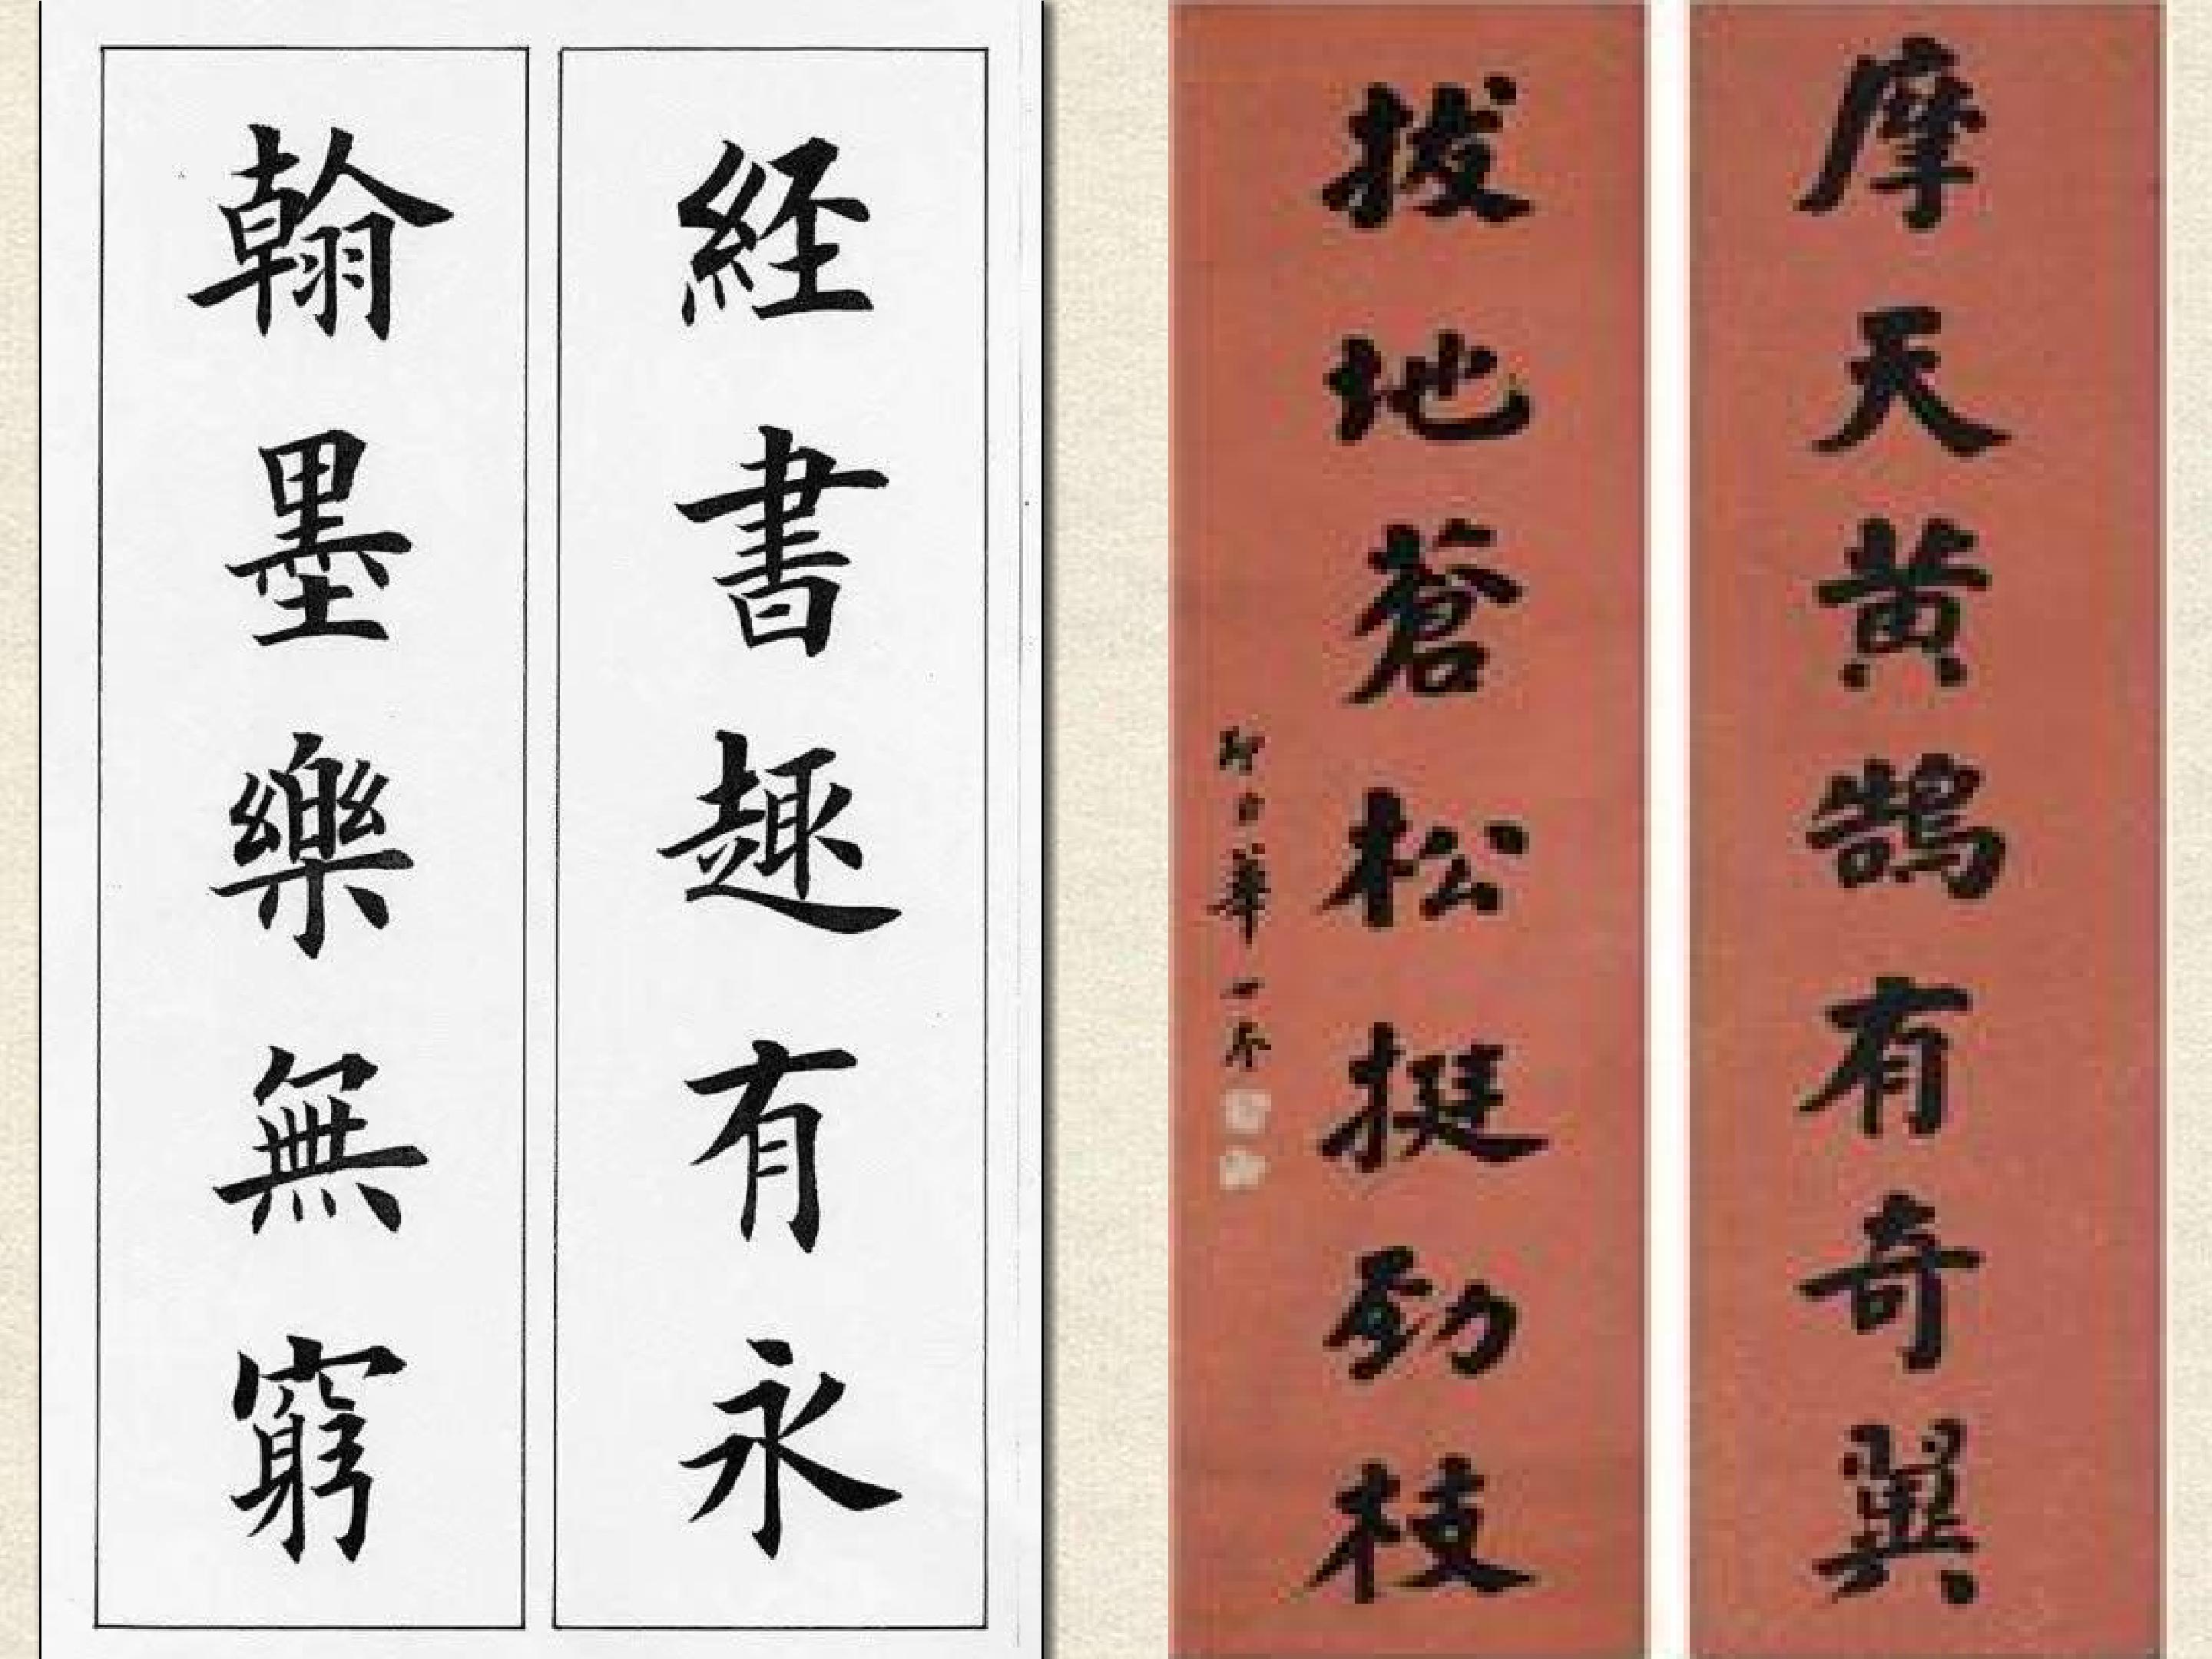 經書趣有永
翰墨樂無窮
摩天黄鵠有奇翼
拔地蒼松挺勁枝